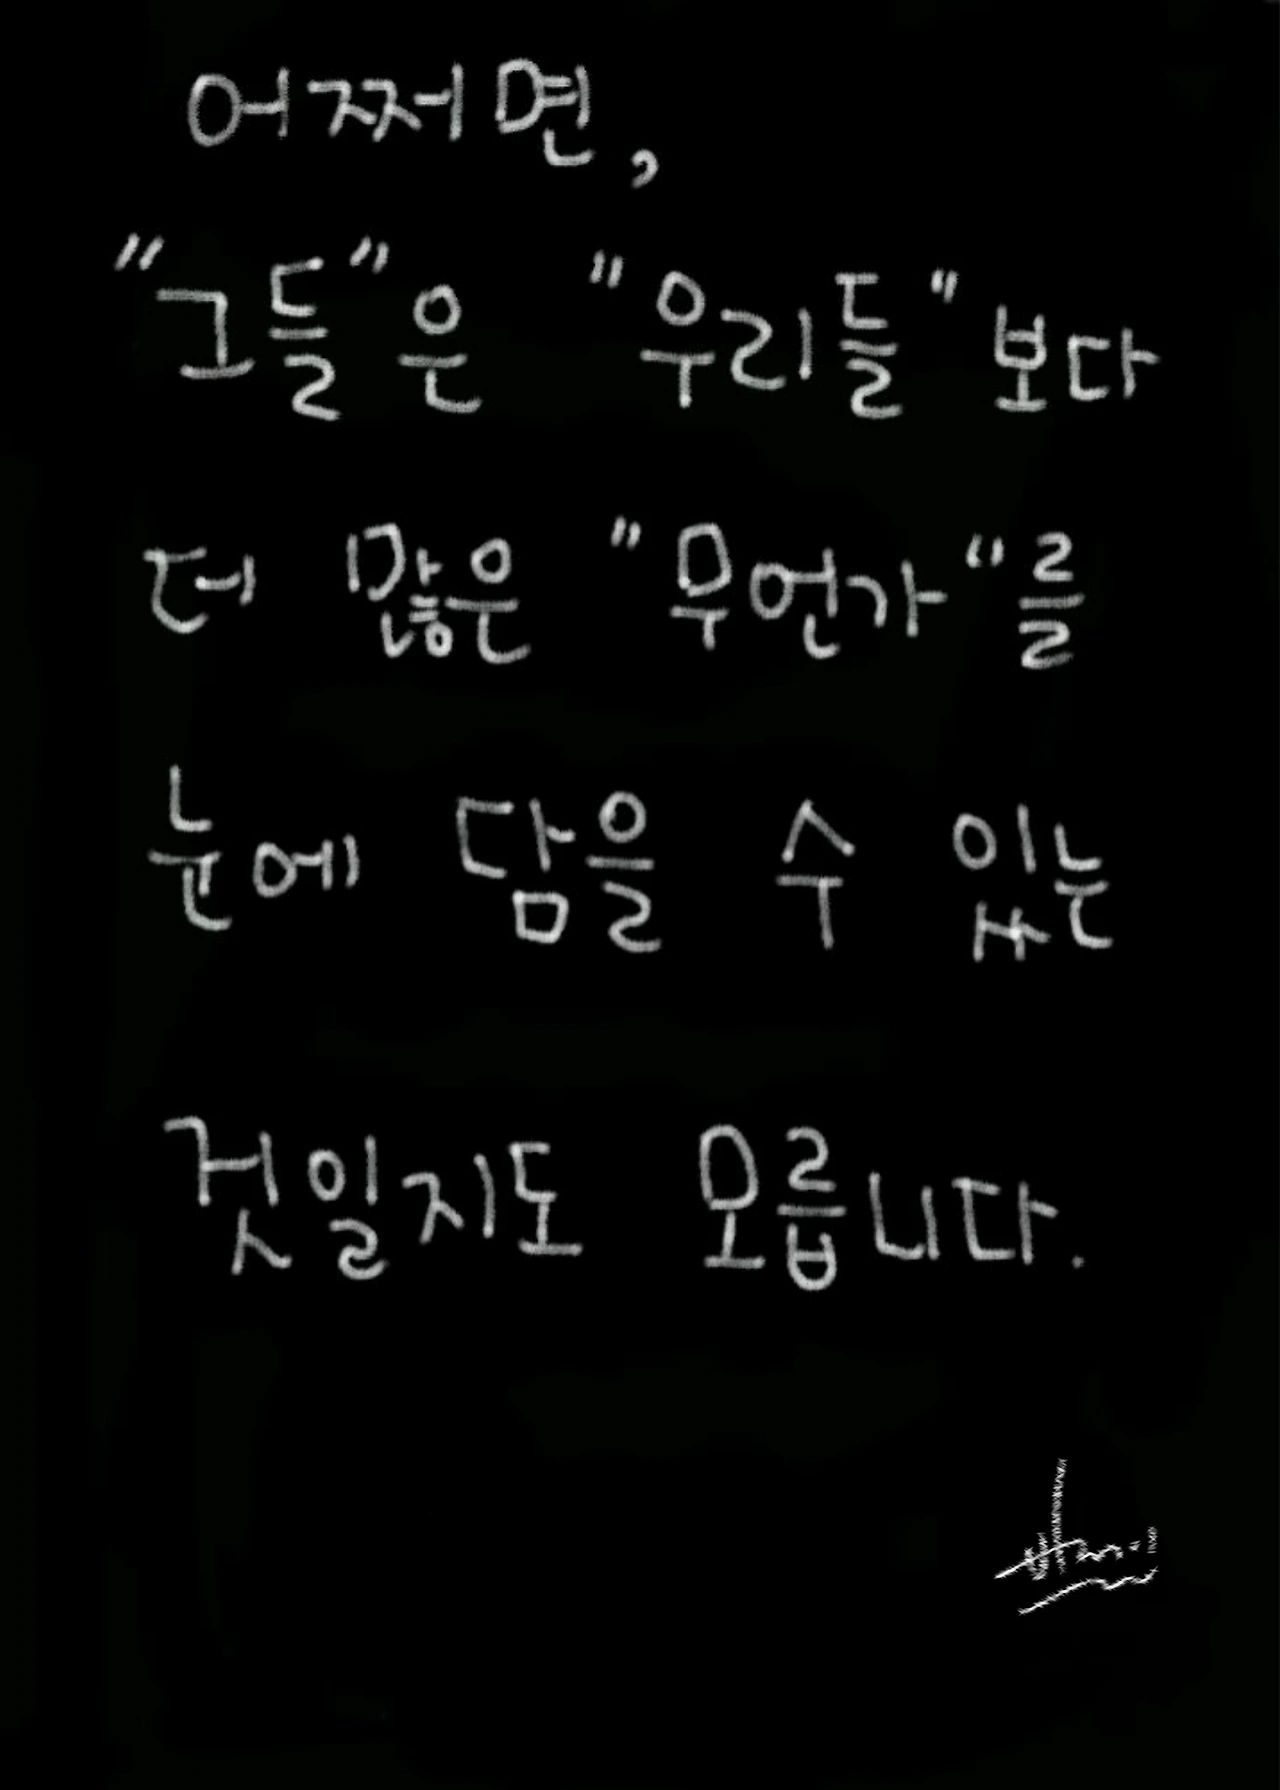 어쩌면,
"그들"은 "우리들"보다
더 많은 "무언가"를
눈에 담을 수 있는
것일지도 모릅니다.